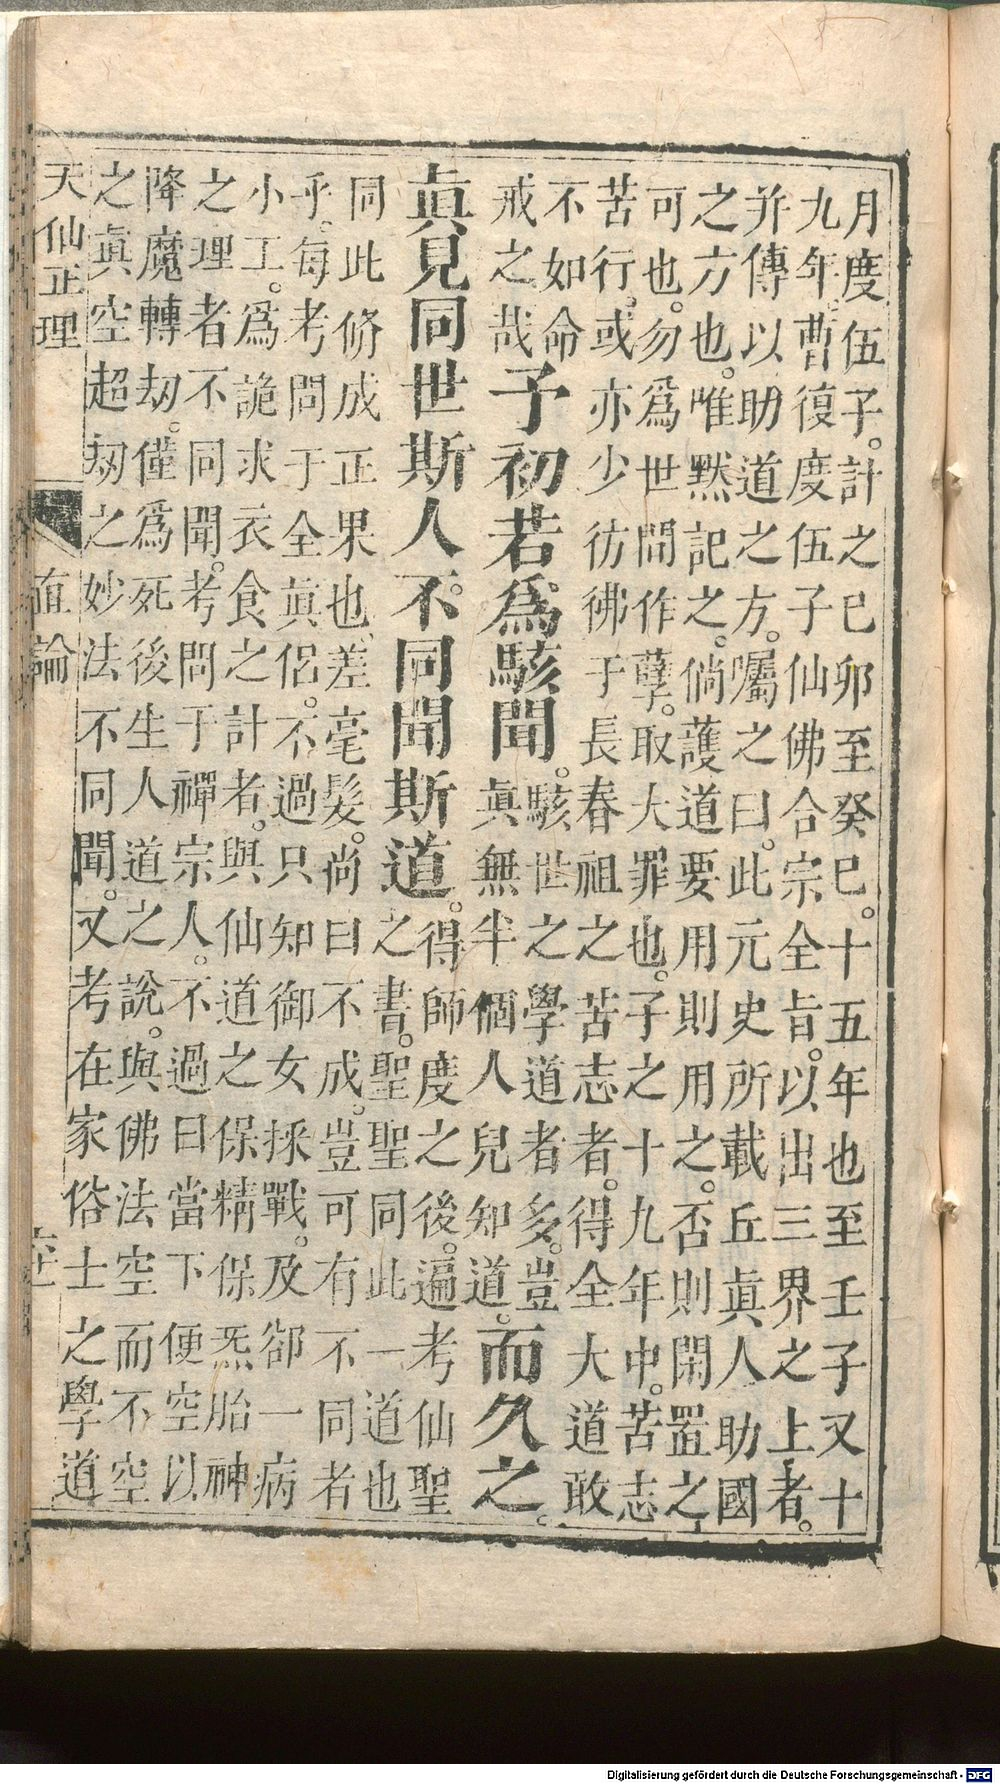 月度伍子。計之己卯至癸巳。十五年也至壬子又十
九年。曹復度伍子仙佛合宗全旨。以出三界之上者。
并傳以助道之方。囑之曰。此元史所載丘眞人助國
之方也。唯默記之。倘護道要用則用之。否則閑置之
可也。勿爲世間作孽。取大罪也。子之十九年中。苦志
苦行。或亦少彷彿于長春祖之苦志者。得全大道敢
不如命
戒之哉
予初若爲駭聞。
駭世之學道者多。豈
眞無半個人兒知道。
而久之。
眞見同世斯人。不同聞斯道。
得師度之後。遍考仙聖
之書。聖聖同此一道也
同此修成正果也、差毫髮。尚曰不成。豈可有不同者
乎。每考問于全眞侶。不過只知御女採戰。及卻一病
小工。爲詭求衣食之計者。與仙道之保精保炁胎神
之理者不同聞。考問于禪宗人。不過曰當下便空以
降魔轉劫。僅爲死後生人道之說。與佛法空而不空
之眞空超劫之妙法不同聞。又考在家俗士之學道
天仙正理
直論
Digitalisierung gefördert durch die Deutsche Forschungsgemeinschaft - DFG